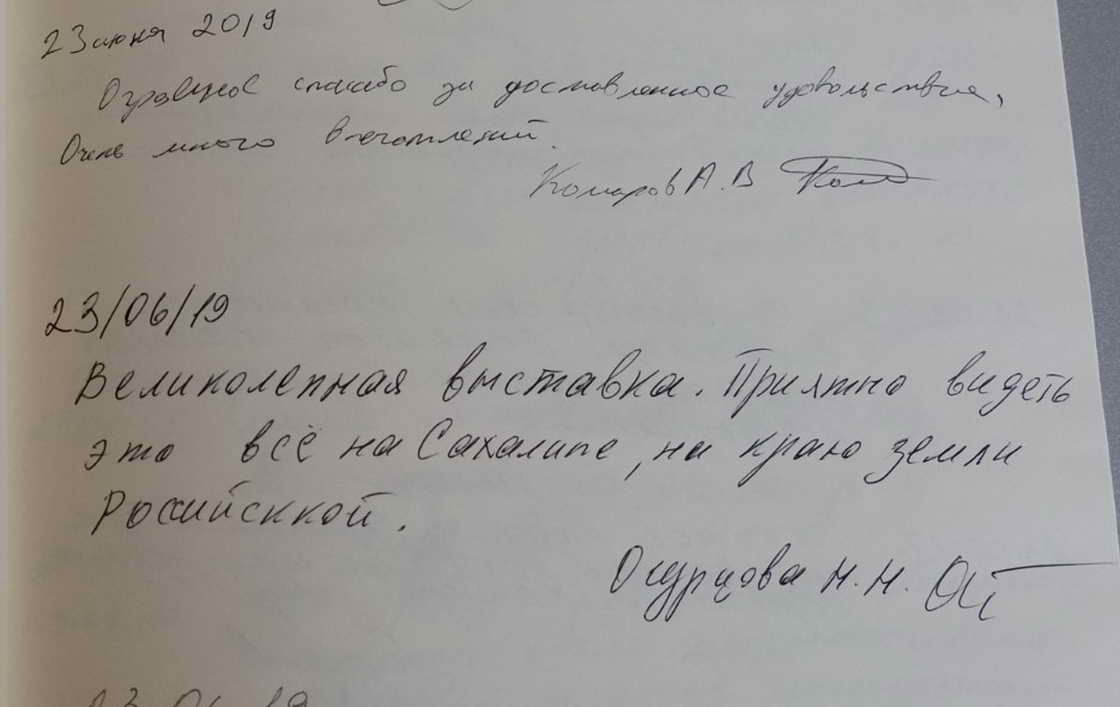 23 июня 2019
Огромное спасибо за доставленное удовольствие,
Очень много впечатлений.
Комаров А.В
23/06/19
Великолепная выставка. Приятно видеть
это всё на Сахалине, на краю земли
Российсккой.
Огурцова Н.Н.
23.06.19